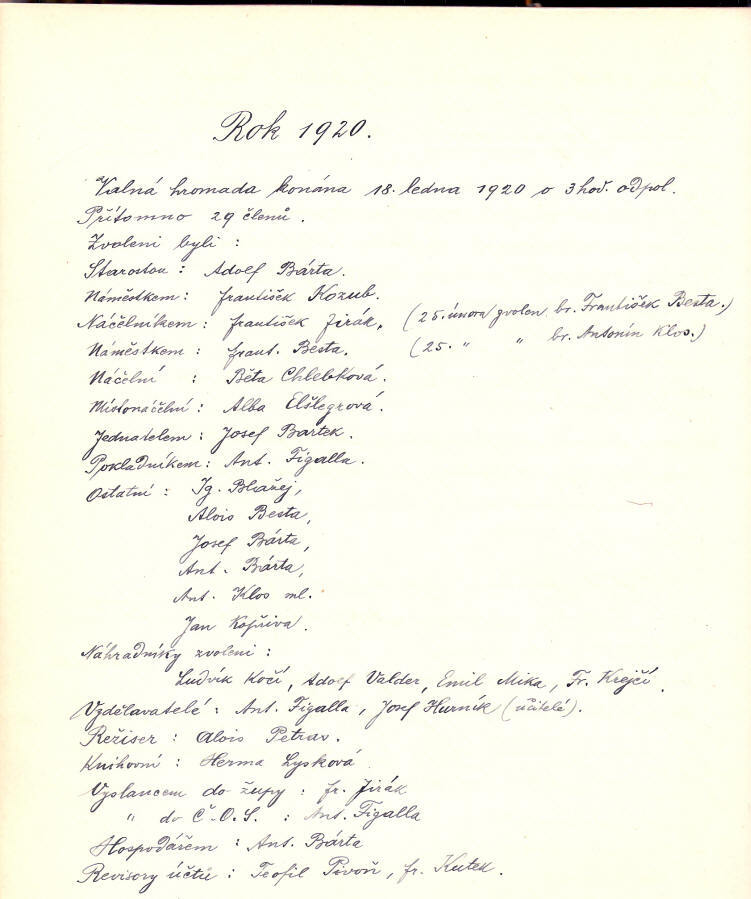 Rok 1920.
Valná hromada konána 18. ledna 1920 o 3 hod. odpol.
Přítomno 29 členů.
Zvoleni byli :
Starostou : Adolf Bárta.
Náměstkem : František Kozub.
Náčelníkem : František Jirák. (25. února zvolen br. František Besta.)
Náměstkem : Frant. Besta. (25. " " br. Antonín Klos.)
Náčelní : Běta Chlebková.
Místonáčelní : Alba Elšlegrová.
Jednatelem : Josef Bartek.
Pokladníkem : Ant. Figalla.
Ostatní : Ig. Blažej,
Alois Besta,
Josef Bárta,
Ant. Bárta,
Ant. Klos ml.
Jan Kopřiva.
Náhradníky zvoleni :
Ludvík Kočí, Adolf Valder, Emil Mika, Fr. Krejčí.
Vzdělavatelé : Ant. Figalla, Josef Hurník (učitelé).
Režiser : Alois Petrav.
Knihovní : Herma Lysková
Vyslancem do župy : Fr. Jirák
" do Č.O.S. : Ant. Figalla
Hospodářem : Ant. Bárta
Revisory účtů : Teofil Pivoň, Fr. Kutek.